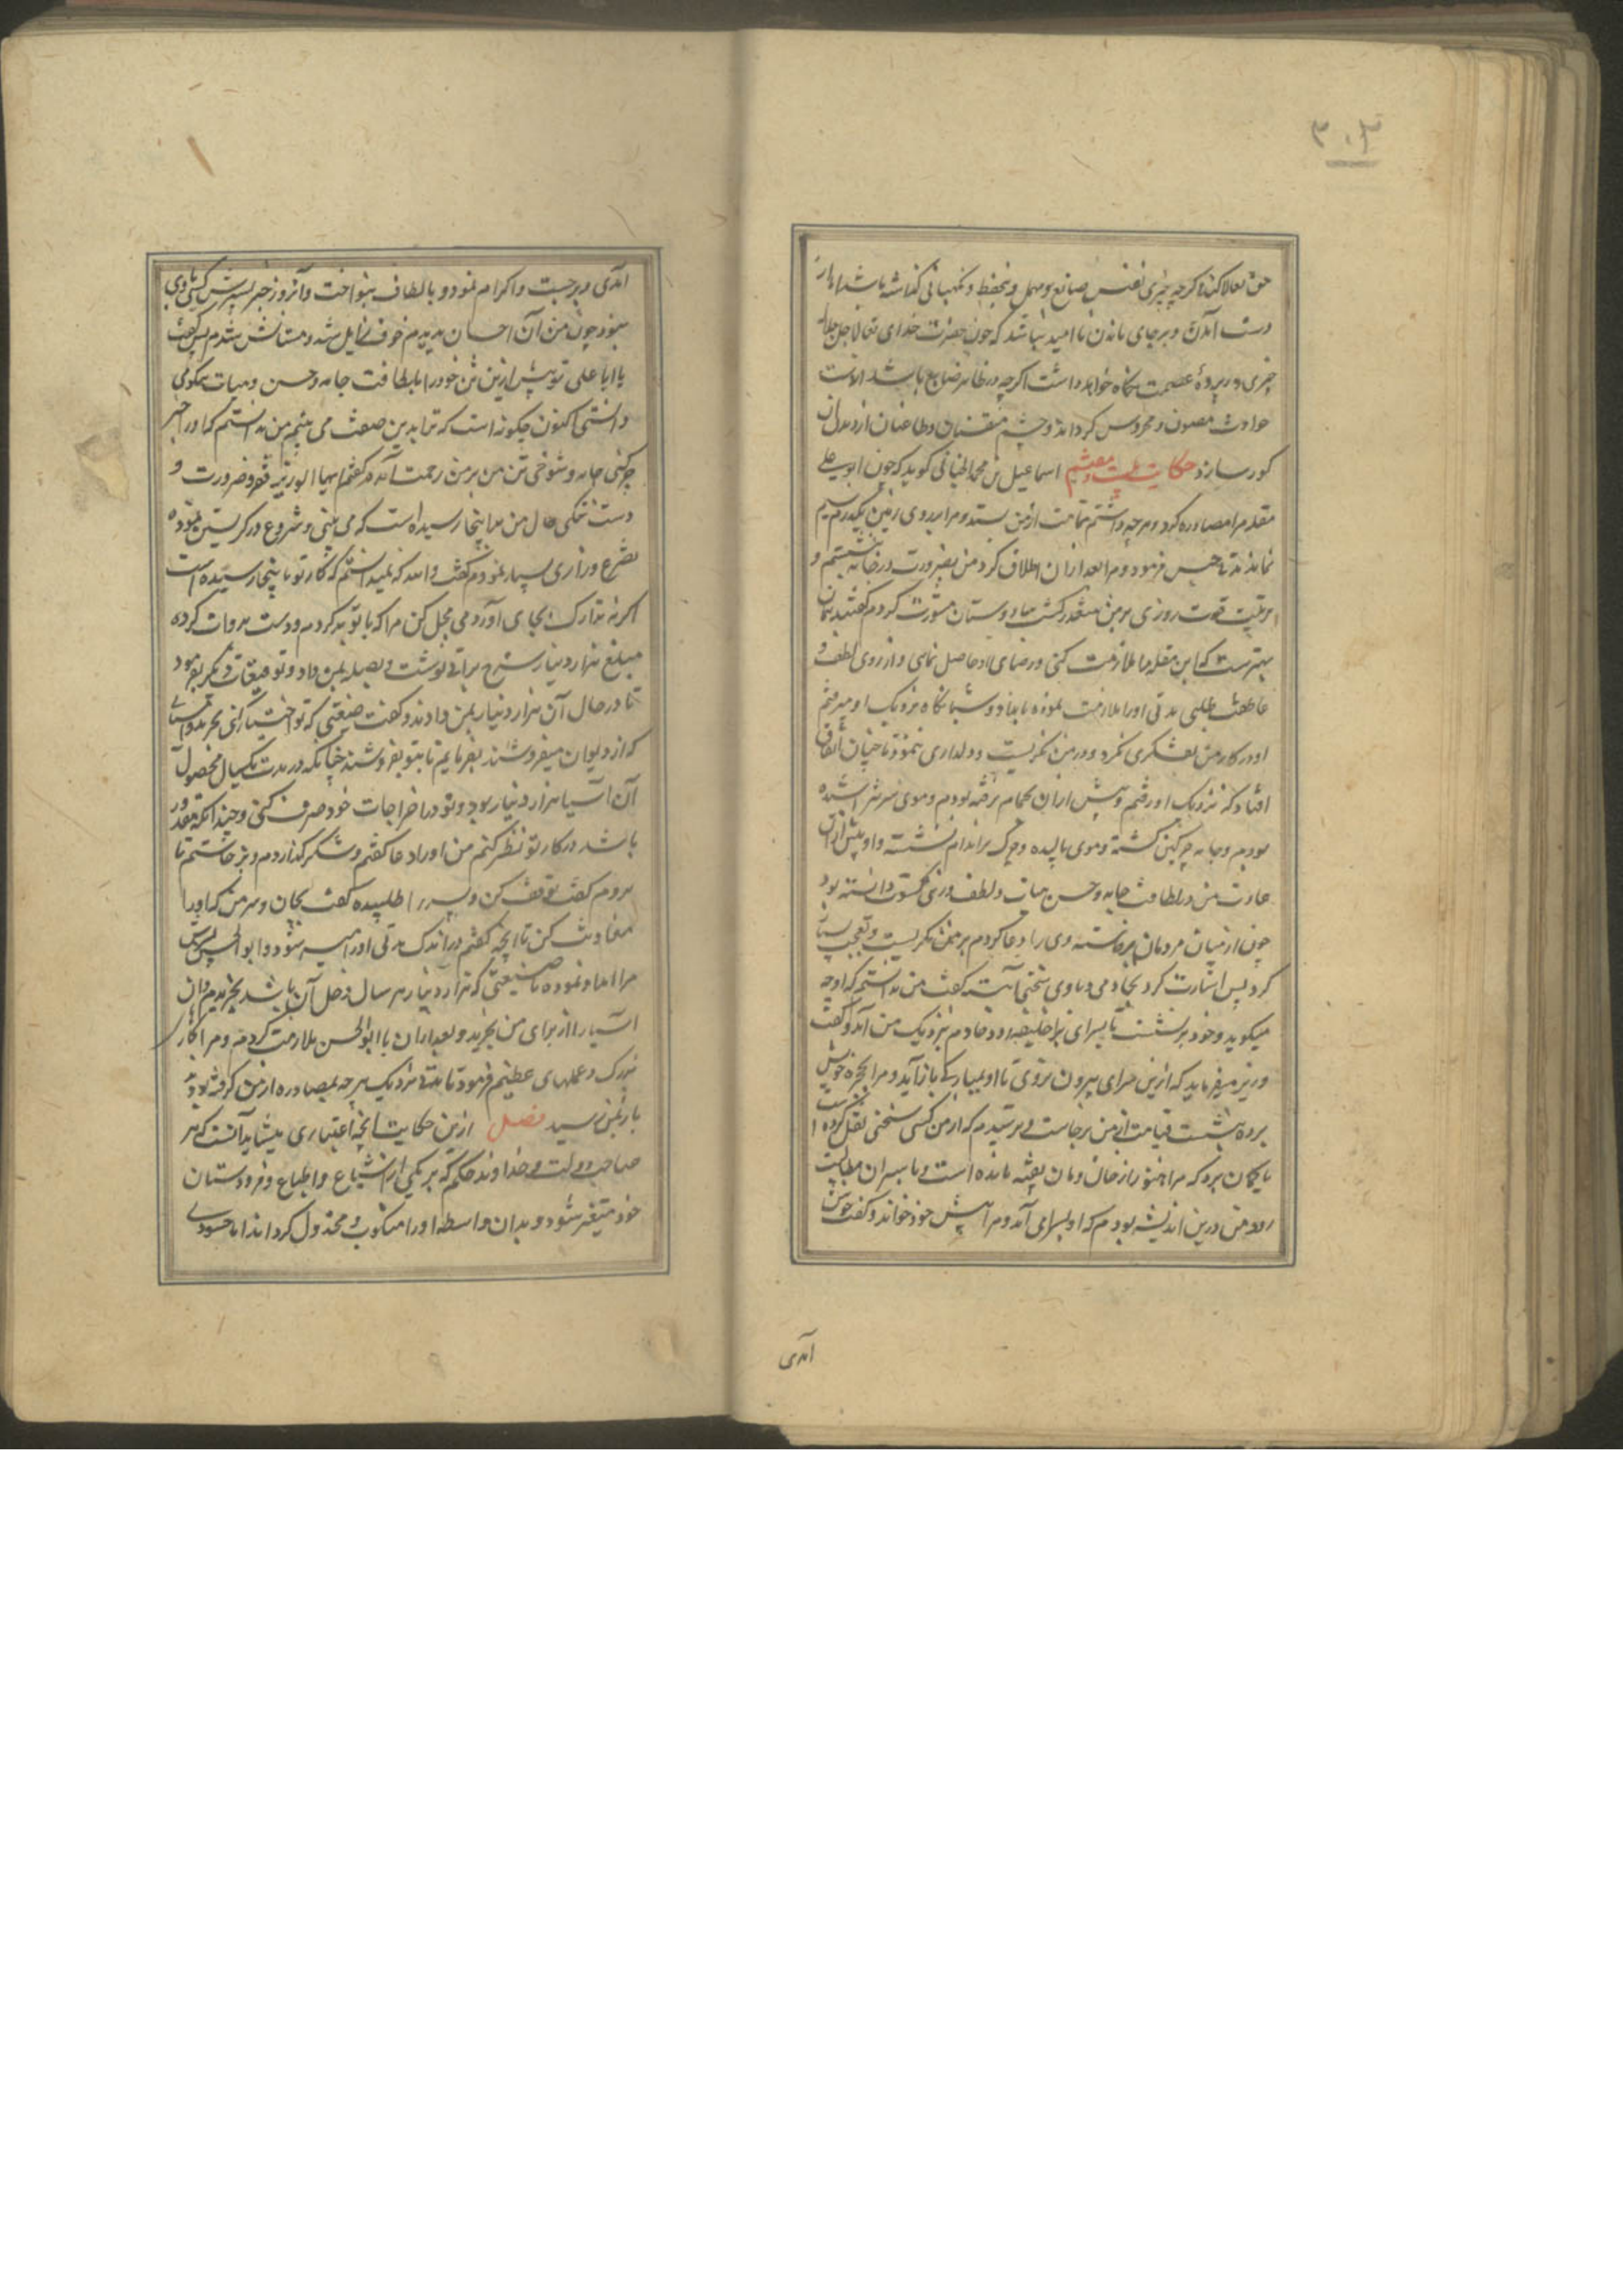 ۳۰۳
حق تعالا کند اکرچه چیزی نفیس ضایع و مهمل و بحفظ و نکهبانی نکذاشته باشد از باز
دست آمدن و برجای ماندن ناامید نباشد که چون حضرت خدای تعالا جل جلاله
چیزی در پردهٔ عصمت نکاه خواهد داشت اکرچه در ظاهر ضایع باشد از آفت
حوادث مصون و محروس کرداند و چشم و طاعنان از دیدن آن
کور سازد حکایت بیست و هشتم اسماعیل بن محمد کوید که چون ابو علی
مقله مرا مصادره کرد و هرچه داشتم تمامت از من بستد و مرا بر روی زمین یکدرم سیم
نماند مدتی حبس فرمود و مرا بعد از ان اطلاق کرد من بضرورت در خانه نشستم و
ترتیب قوت روزی بر من متعذر کشت با دوستان مشورت کردم کفتند همان
بهترست که ابن مقله را ملازمت کنی و رضای او حاصل نمایی و از روی لطف و
عاطفت طلبی مدتی او را ملازمت نموده بامداد و شبانکاه نزدیک او میرفتم
او در کار من تفکری نکرد و در من نکریست و دلداری ننمود تا چنان اتفاق
افتاد که نزدیک او رفتم و پیش از ان بحمام نرفته بودم و موی سر نتراشیده
بودم و جامه چرکین کشته و موی بالیده و چرک بر اندام نشسته و او پیش ازان
عادت من در لطافت جامه و حسن هیات و لطف و کسوت دانسته بود
چون از میان مردمان برخاسته وی را دعا کردم بر من نکریست و تعجب بسیار
کرد پس اشارت کرد بخادمی و با وی سخنی آهسته کفت من ندانستم که او چه
میکوید و خود برنشست تا بسرای خلیفه رود خادم نزدیک من آمد و کفت
وزیر میفرماید که ازین سرای بیرون نروی تا او بمبارکی بازآید و مرا بحجره خویش
برده بنشست قیامت از من برخاست و ترسیدم که از من کسی سخنی نقل کرده است
یا کمان برد که مرا هنوز از خان و مان بقیه مانده است و با سر آن مطالبت
رود من درین اندیشه بودم که او بسرای آمد و مرا پیش خود خواند و کفت خوش
آمدی
آمدی و برجست و اکرام نمود و بالطاف بنواخت و آنروز جز پسرش کسی با وی
نبود چون من آن احسان بدیدم خوف زایل شد و مستانس شدم پس کفت
یا ابا علی تو پیش ازین تن خود را بلطافت جامه و حسن و هیات نیکومی
داشتی اکنون چکونه است که ترا بدین صفت می بینم من ندانستم که او را جز
چرکنی جامه و شوخی تن من بر من رحمت آمد کفتم ایها الوزیر فقر و ضرورت و
دست تنکی حال من بدا ینجا رسیده است که می بینی و شروع در کریستن نموده
تضرع و زاری بسیار نمودم کفت والله که نمیدانستم که کار تو بدینجا رسیده است
اکرنه تدارک بجای آوردمی بحل کن مرا که با تو بد کردم و دست بدوات کرده
مبلغ هزار دینار سرخ برات نوشت و بصله بمن داد و توقیعات دیکر بفرمود
تا در حال آن هزار دینار بمن دادند و کفت ضیعتی که تو اختیار کنی بخر
که از دیوان میفروشند بفرمایم تا بتو بفروشند چنانکه در مدت یکسال محصول
آن آسیا هزار دینار بود و تو در اخراجات خود صرف کنی و چندانکه مقدور
باشد در کار تو نظر کنم من او را دعا کفتم و شکر کذاردم و برخاستم تا
بروم کفت توقف کن و پسر را طلبیده کفت بجان و سر من که او را
معاونت کن تا آنچه کفتم در اندک مدتی او را میسر شود و ابوالحسن پسرش
مرا امداد نموده تا ضیعتی که هزار دینار هر سال دخل آن باشد بخریدم و آن
آسیا را از برای من بخرید و بعد از ان با ابوالحسن ملازمت کردم و مرا بکار
بزرک و عملهای عظیم فرمود تا بمدتی نزدیک هرچه بمصادره از من کرفته بودند
باز بمن رسید فصل ازین حکایت آنچه اعتباری میشاید آنست که هر
صاحب دولت و خداوند حکم که بر یکی از اشیاع و اتباع و فرودستان
خود متغیر شود و بدان واسطه او را منکوب و مخذول کرداند اما حسودی